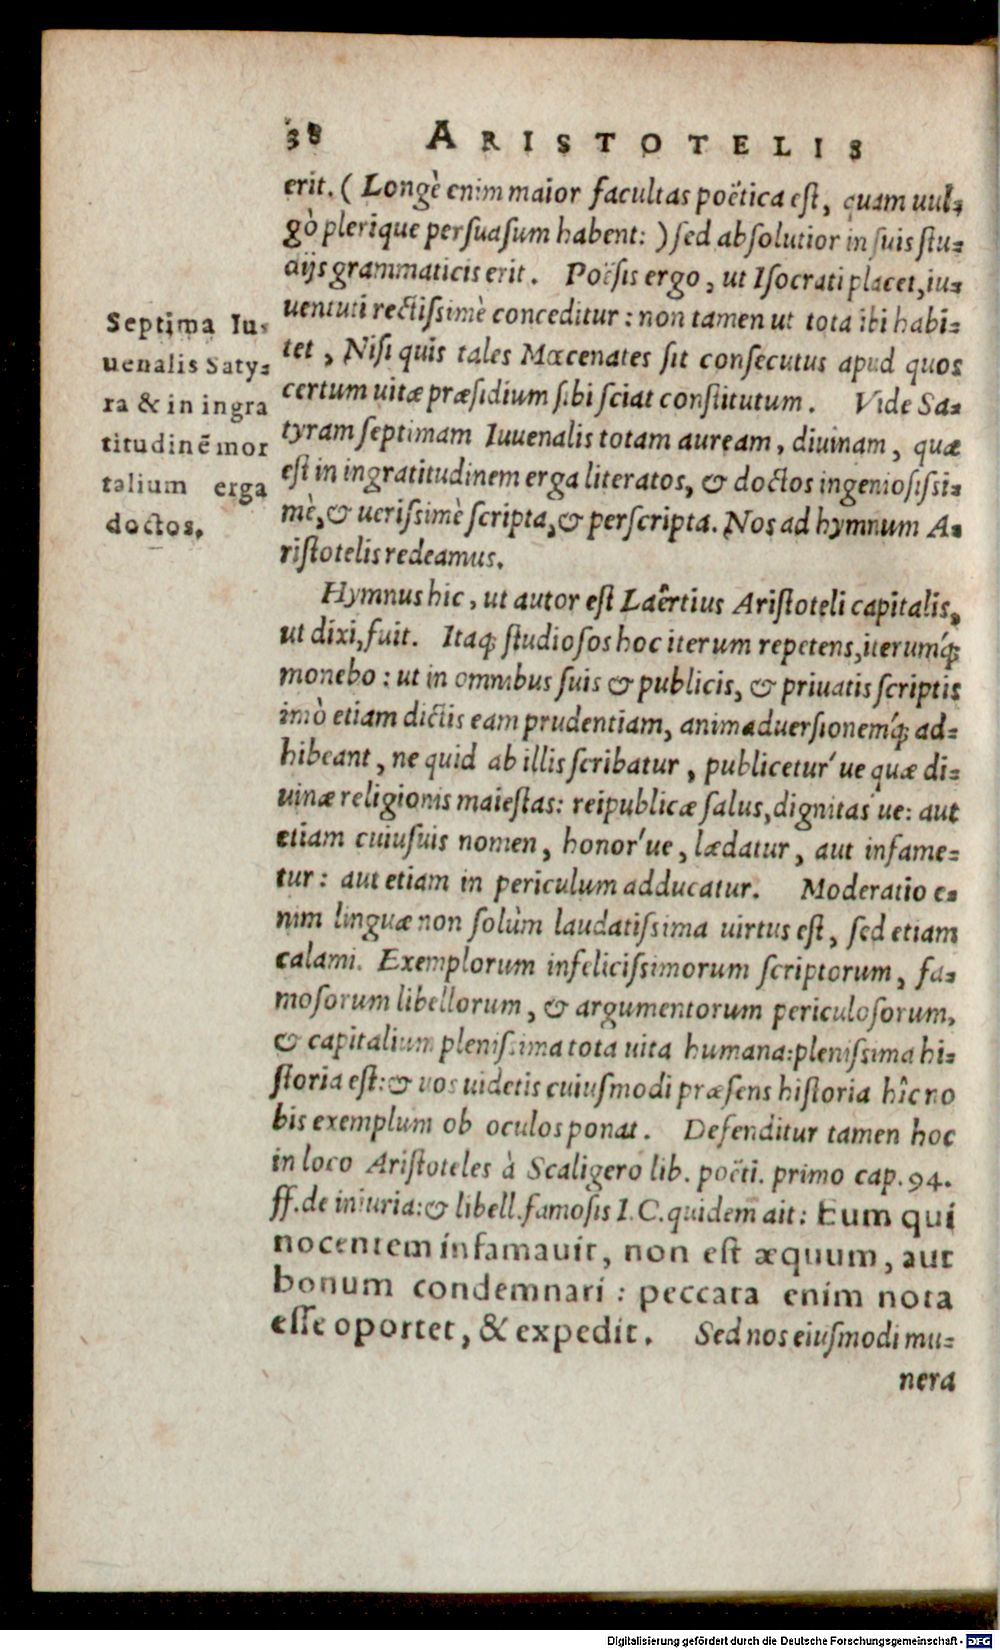 38 ARISTOTELIS
erit. (Longè enim maior facultas poëtica est, quam uul⸗
gò plerique persuasum habent: ) sed absolutior in suis stu⸗
dijs grammaticis erit. Poësis ergo, ut Isocrati placet, iu⸗
uentuti rectissimè conceditur: non tamen ut tota ibi habi⸗
tet, Nisi quis tales Mæcenates sit consecutus apud quos
certum uitæ præsidium sibi sciat constitutum. Vide Sa⸗
tyram septimam Iuuenalis totam auream, diuinam, quæ
est in ingratitudinem erga literatos, & doctos ingeniosissi⸗
mè, & uerissimè scripta, & perscripta. Nos ad hymnum A⸗
ristotelis redeamus.
Septima Iu⸗
uenalis Saty⸗
ra & in ingra
titudinē mor
talium erga
doctos.
Hymnus hic, ut autor est Laêrtius Aristoteli capitalis,
ut dixi, fuit. Itaq; studiosos hoc iterum repetens, iterumq́;
monebo: ut in omnibus suis & publicis, & priuatis scriptis
imò etiam dictis eam prudentiam, animaduersionemq́; ad⸗
hibeant, ne quid ab illis scribatur, publicetur´ue quæ di⸗
uinæ religionis maiestas: reipublicæ salus, dignitas´ue: aut
etiam cuiusuis nomen, honor´ue, lædatur, aut infame⸗
tur: aut etiam in periculum adducatur. Moderatio e⸗
nim linguæ non solùm laudatissima uirtus est, sed etiam
calami. Exemplorum infelicissimorum scriptorum, fa⸗
mosorum libellorum, & argumentorum periculosorum,
& capitalium plenissima tota uita humana: plenissima hi⸗
storia est: & uos uidetis cuiusmodi præsens historia hîc no
bis exemplum ob oculos ponat. Defenditur tamen hoc
in loco Aristoteles à Scaligero lib. poëti. primo cap. 94.
ff. de iniuria: & libell. famosis I. C. quidem ait: Eum qui
nocentem infamauit, non est æquum, aut
bonum condemnari: peccata enim nota
esse oportet, & expedit. Sed nos eiusmodi mu⸗
nera
Digitalisierung gefördert durch die Deutsche Forschungsgemeinschaft - DFG